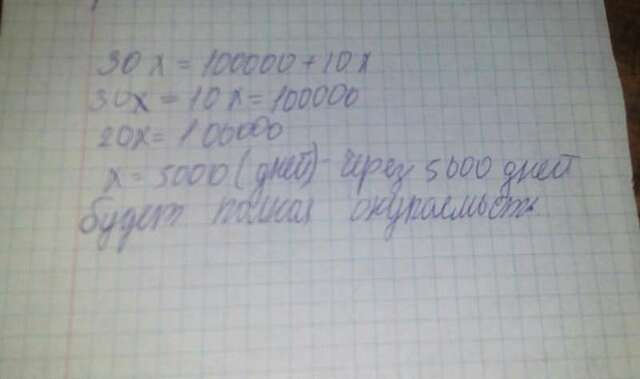 30 x = 100000 + 10 x
30x - 10 x = 100000
20x = 100000
x = 5000 (дней) - через 5000 дней
будет полная окупаемость